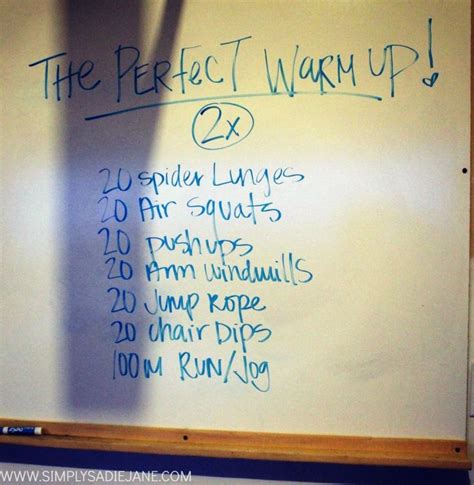 THE PERFECT WARM UP!
2x
20 spider Lunges
20 Air Squats
20 pushups
20 Arm windmills
20 Jump Rope
20 chair Dips
100m RUN/Jog
WWW.SIMPLYSADIEJANE.COM